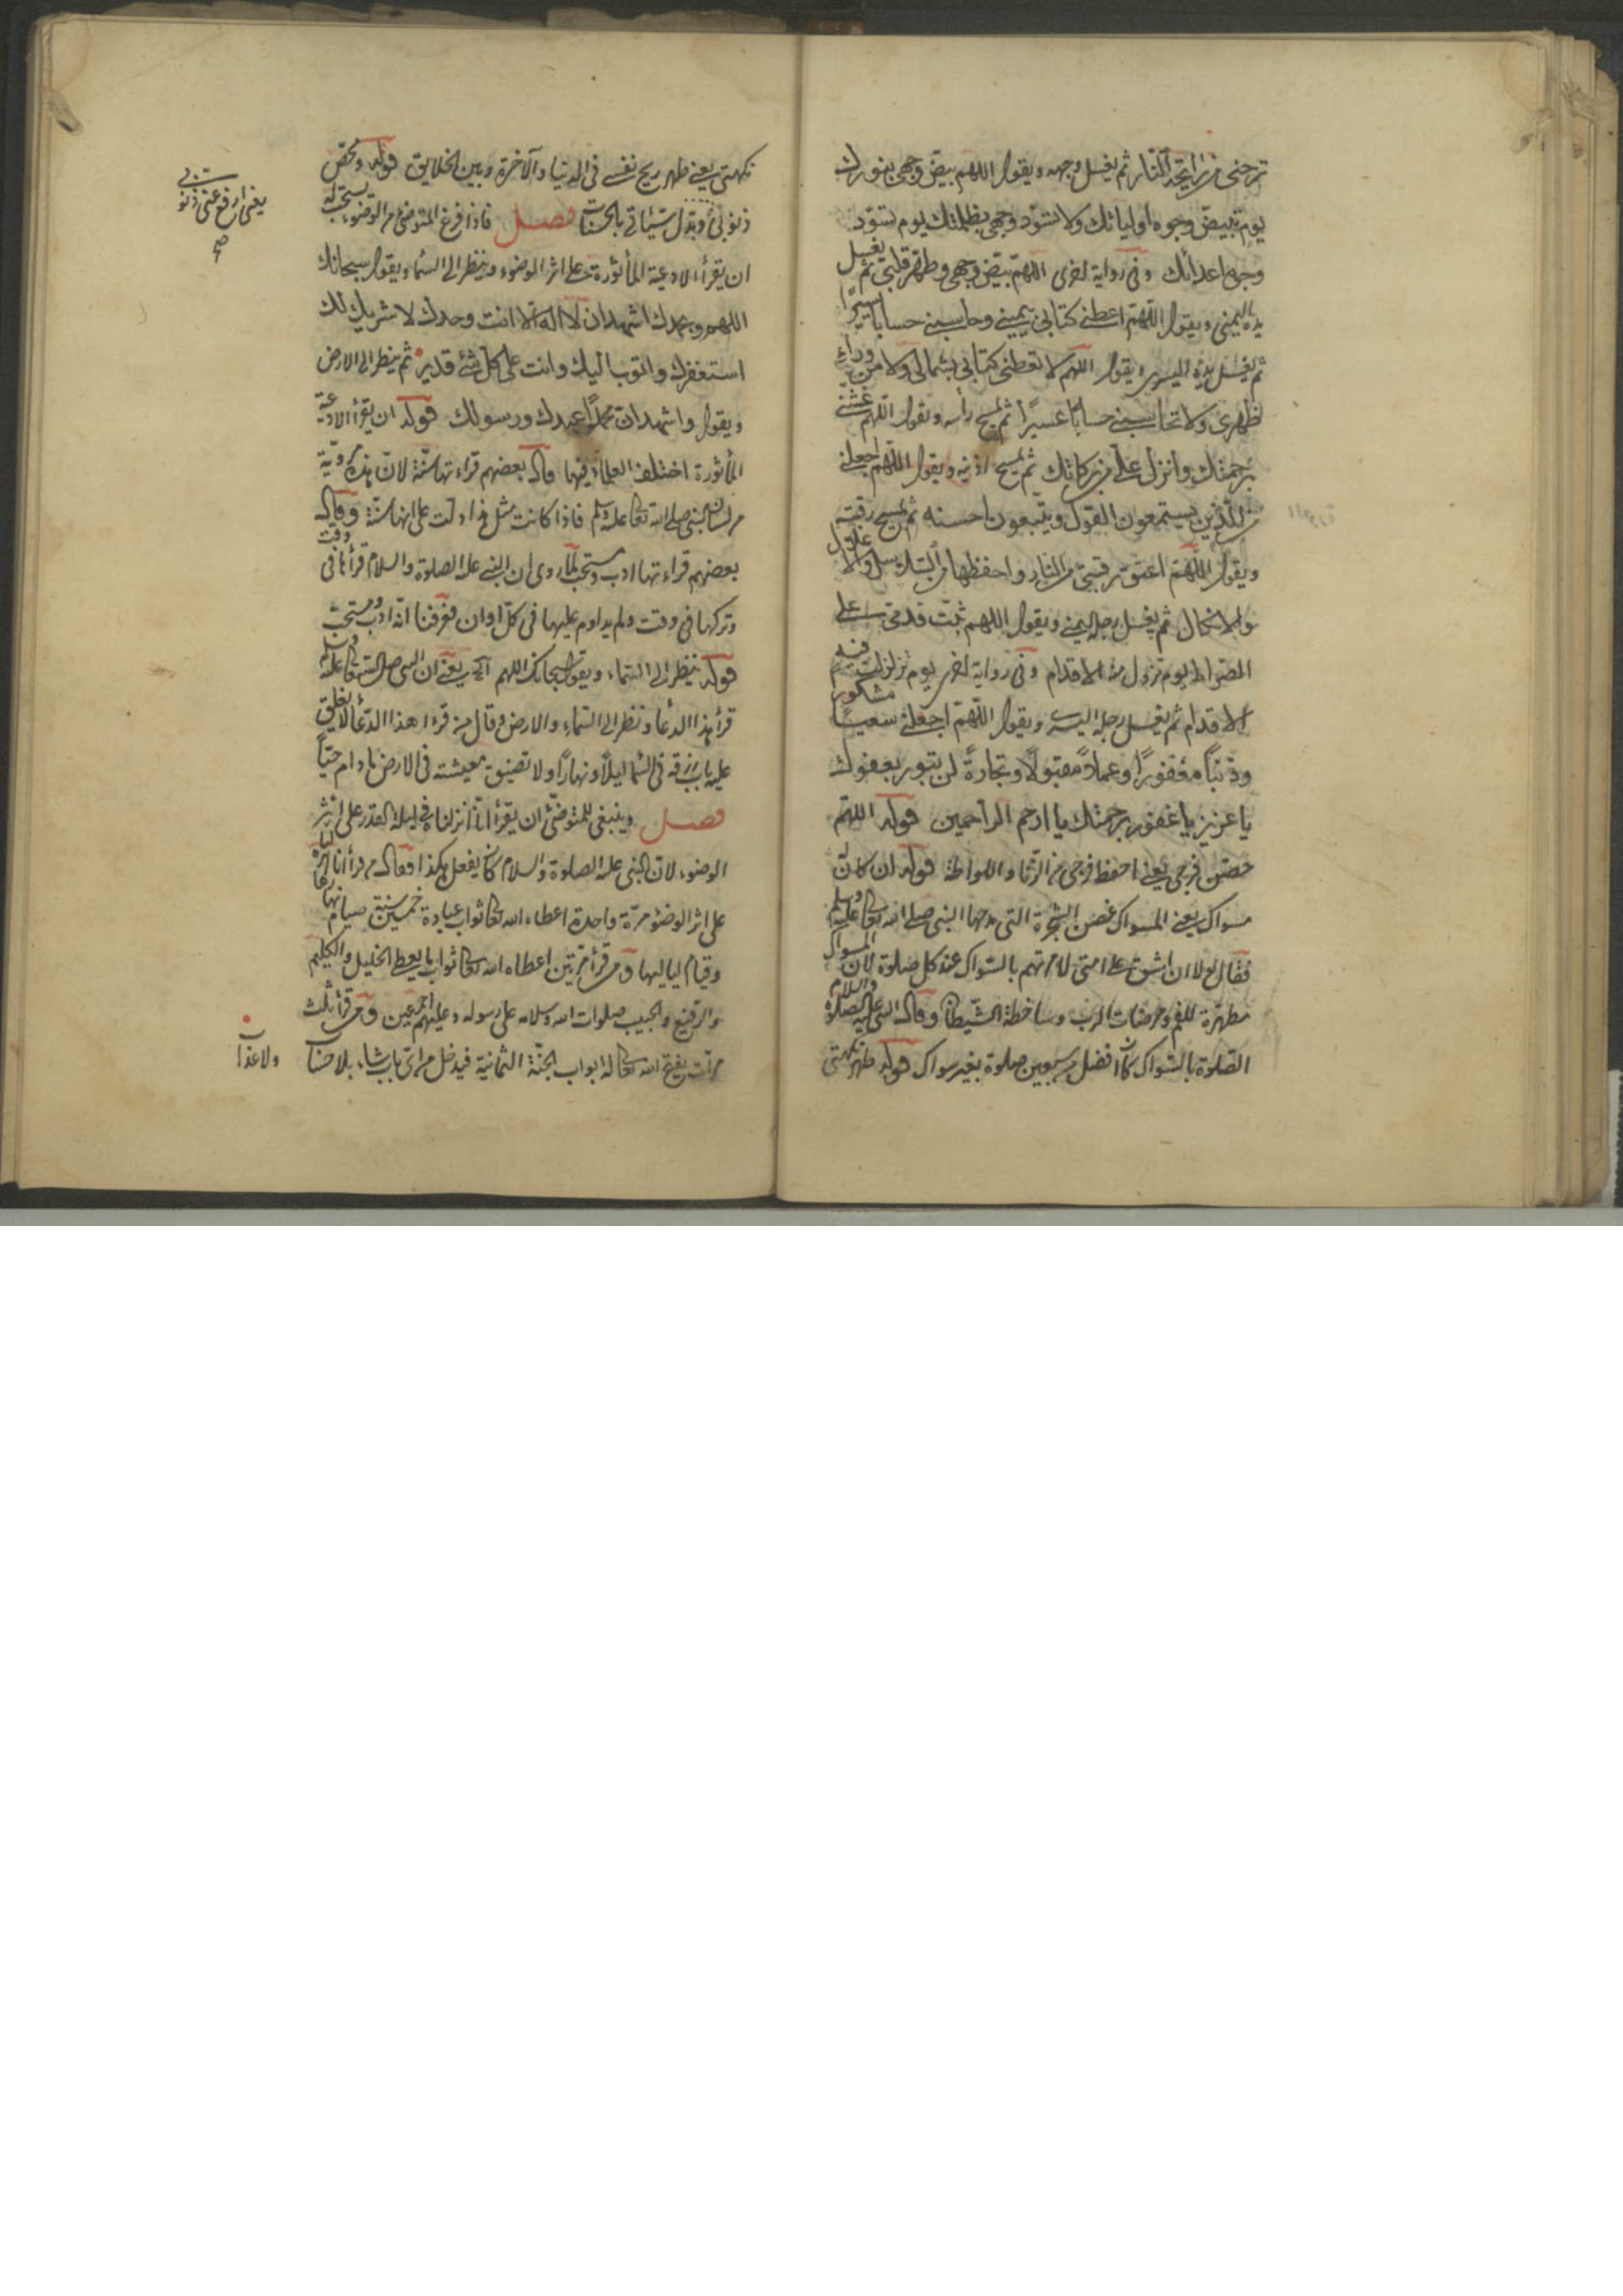 ترحنى من رائحة النار ثم يغسل وجهه ويقول اللهم بيض وجهى بنورك
يوم تبيض وجوه اوليائك ولا تسود وجهى بظلمتك يوم تسود
وجوه اعدائك وفى رواية اخرى اللهم بيض وجهى وطهر قلبى ثم يغسل
يده اليمنى ويقول اللهم اعطنى كتابى بيمينى وحاسبنى حسابا يسيرا
ثم يغسل يده اليسرى ويقول اللهم لا تعطنى كتابى بشمالى ولا من وراء
ظهرى ولا تحاسبنى حسابا عسيرا ثم يمسح رأسه ويقول اللهم غشنى
برحمتك وانزل على من بركاتك ثم يمسح اذنيه ويقول اللهم اجعلنى
من الذين يستمعون القول ويتبعون احسنه ثم يمسح رقبته
ويقول اللهم اعتق رقبتى من النار واحفظها من السلاسل والاغلال
والانكال ثم يغسل رجله اليمنى ويقول اللهم ثبت قدمى على
الصراط يوم تزول منه الاقدام وفى رواية اخرى يوم تزلزلت فيه
الاقدام ثم يغسل رجله اليسرى ويقول اللهم اجعلنى سعيا مشكورا
وذنبا مغفورا وعملا مقبولا وتجارة لن تبور بعفوك
يا عزيز يا غفور برحمتك يا ارحم الراحمين قوله اللهم
حصن فرجى يعنى احفظ فرجى من الزنا واللواطة قوله ان كان له
مسواك يعنى المسواك غصن الشجرة التى مدحها النبى صلى الله تعالى عليه وسلم
فقال لولا ان اشق على امتى لامرتهم بالسواك عند كل صلوة لان المسواك
مطهرة للفم ومرضات الرب ومساخطة الشيطان وقال النبى عليه الصلوة والسلام
الصلوة بالسواك كان افضل من سبعين صلوة بغير سواك قوله ظهر نكهتى
نكهتى يعنى ظهر ريح نفسى فى الدنيا والآخرة وبين الخلايق قوله ومحص
ذنوبى وبدل سيئاتى بالحسنات فصل فاذا فرغ المتوضئ من الوضوء يستحب له
ان يقرأ الادعية المأثورة على اثر الوضوء وينظر الى السماء ويقول سبحانك
اللهم وبحمدك اشهد ان لا اله الا انت وحدك لا شريك لك
استغفرك واتوب اليك وانت على كل شئ قدير ثم ينظر الى الارض
ويقول واشهد ان محمدا عبدك ورسولك قوله ان يقرأ الادعية
المأثورة اختلف العلماء فيها قال بعضهم قراءتها سنة لان هذه مروية
من لسان النبى صلى الله تعالى عليه وسلم فاذا كانت مثل هذا دلت على انها سنة وقال
بعضهم قراءتها ادب ومستحب لما روى ان النبى عليه الصلوة والسلام قرأها فى وقت
وتركها فى وقت ولم يداوم عليها فى كل اوان فعرفنا انه ادب ومستحب
قوله ينظر الى السماء ويقول سبحانك اللهم آه يعنى ان النبى صلى الله تعالى عليه وسلم
قرأ هذا الدعا ونظر الى السماء والارض وقال من قرء هذا الدعا لا يغلق
عليه باب رزقه فى السما ليلا ونهارا ولا تضيق معيشته فى الارض ما دام حيا
فصل وينبغى للمتوضئ ان يقرأ انا انزلناه فى ليلة القدر على اثر
الوضوء لان النبى عليه الصلوة والسلام كان يفعل هكذا فقال من قرأ انا انزلناه
على اثر الوضوء مرة واحدة اعطاه الله تعالى ثواب عبادة خمسين سنة صيام نهارها
وقيام لياليها ومن قرأ مرتين اعطاه الله تعالى ثواب ما يعطى الخليل والكليم
والرفيع والحبيب صلوات الله وسلامه على رسوله وعليهم اجمعين ومن قرأ ثلث
مرات يفتح الله تعالى له ابواب الجنة الثمانية فيدخل من اى باب شاء بلا حساب
ولا عذاب
يعنى ارفع عنى ذنوبى
صح